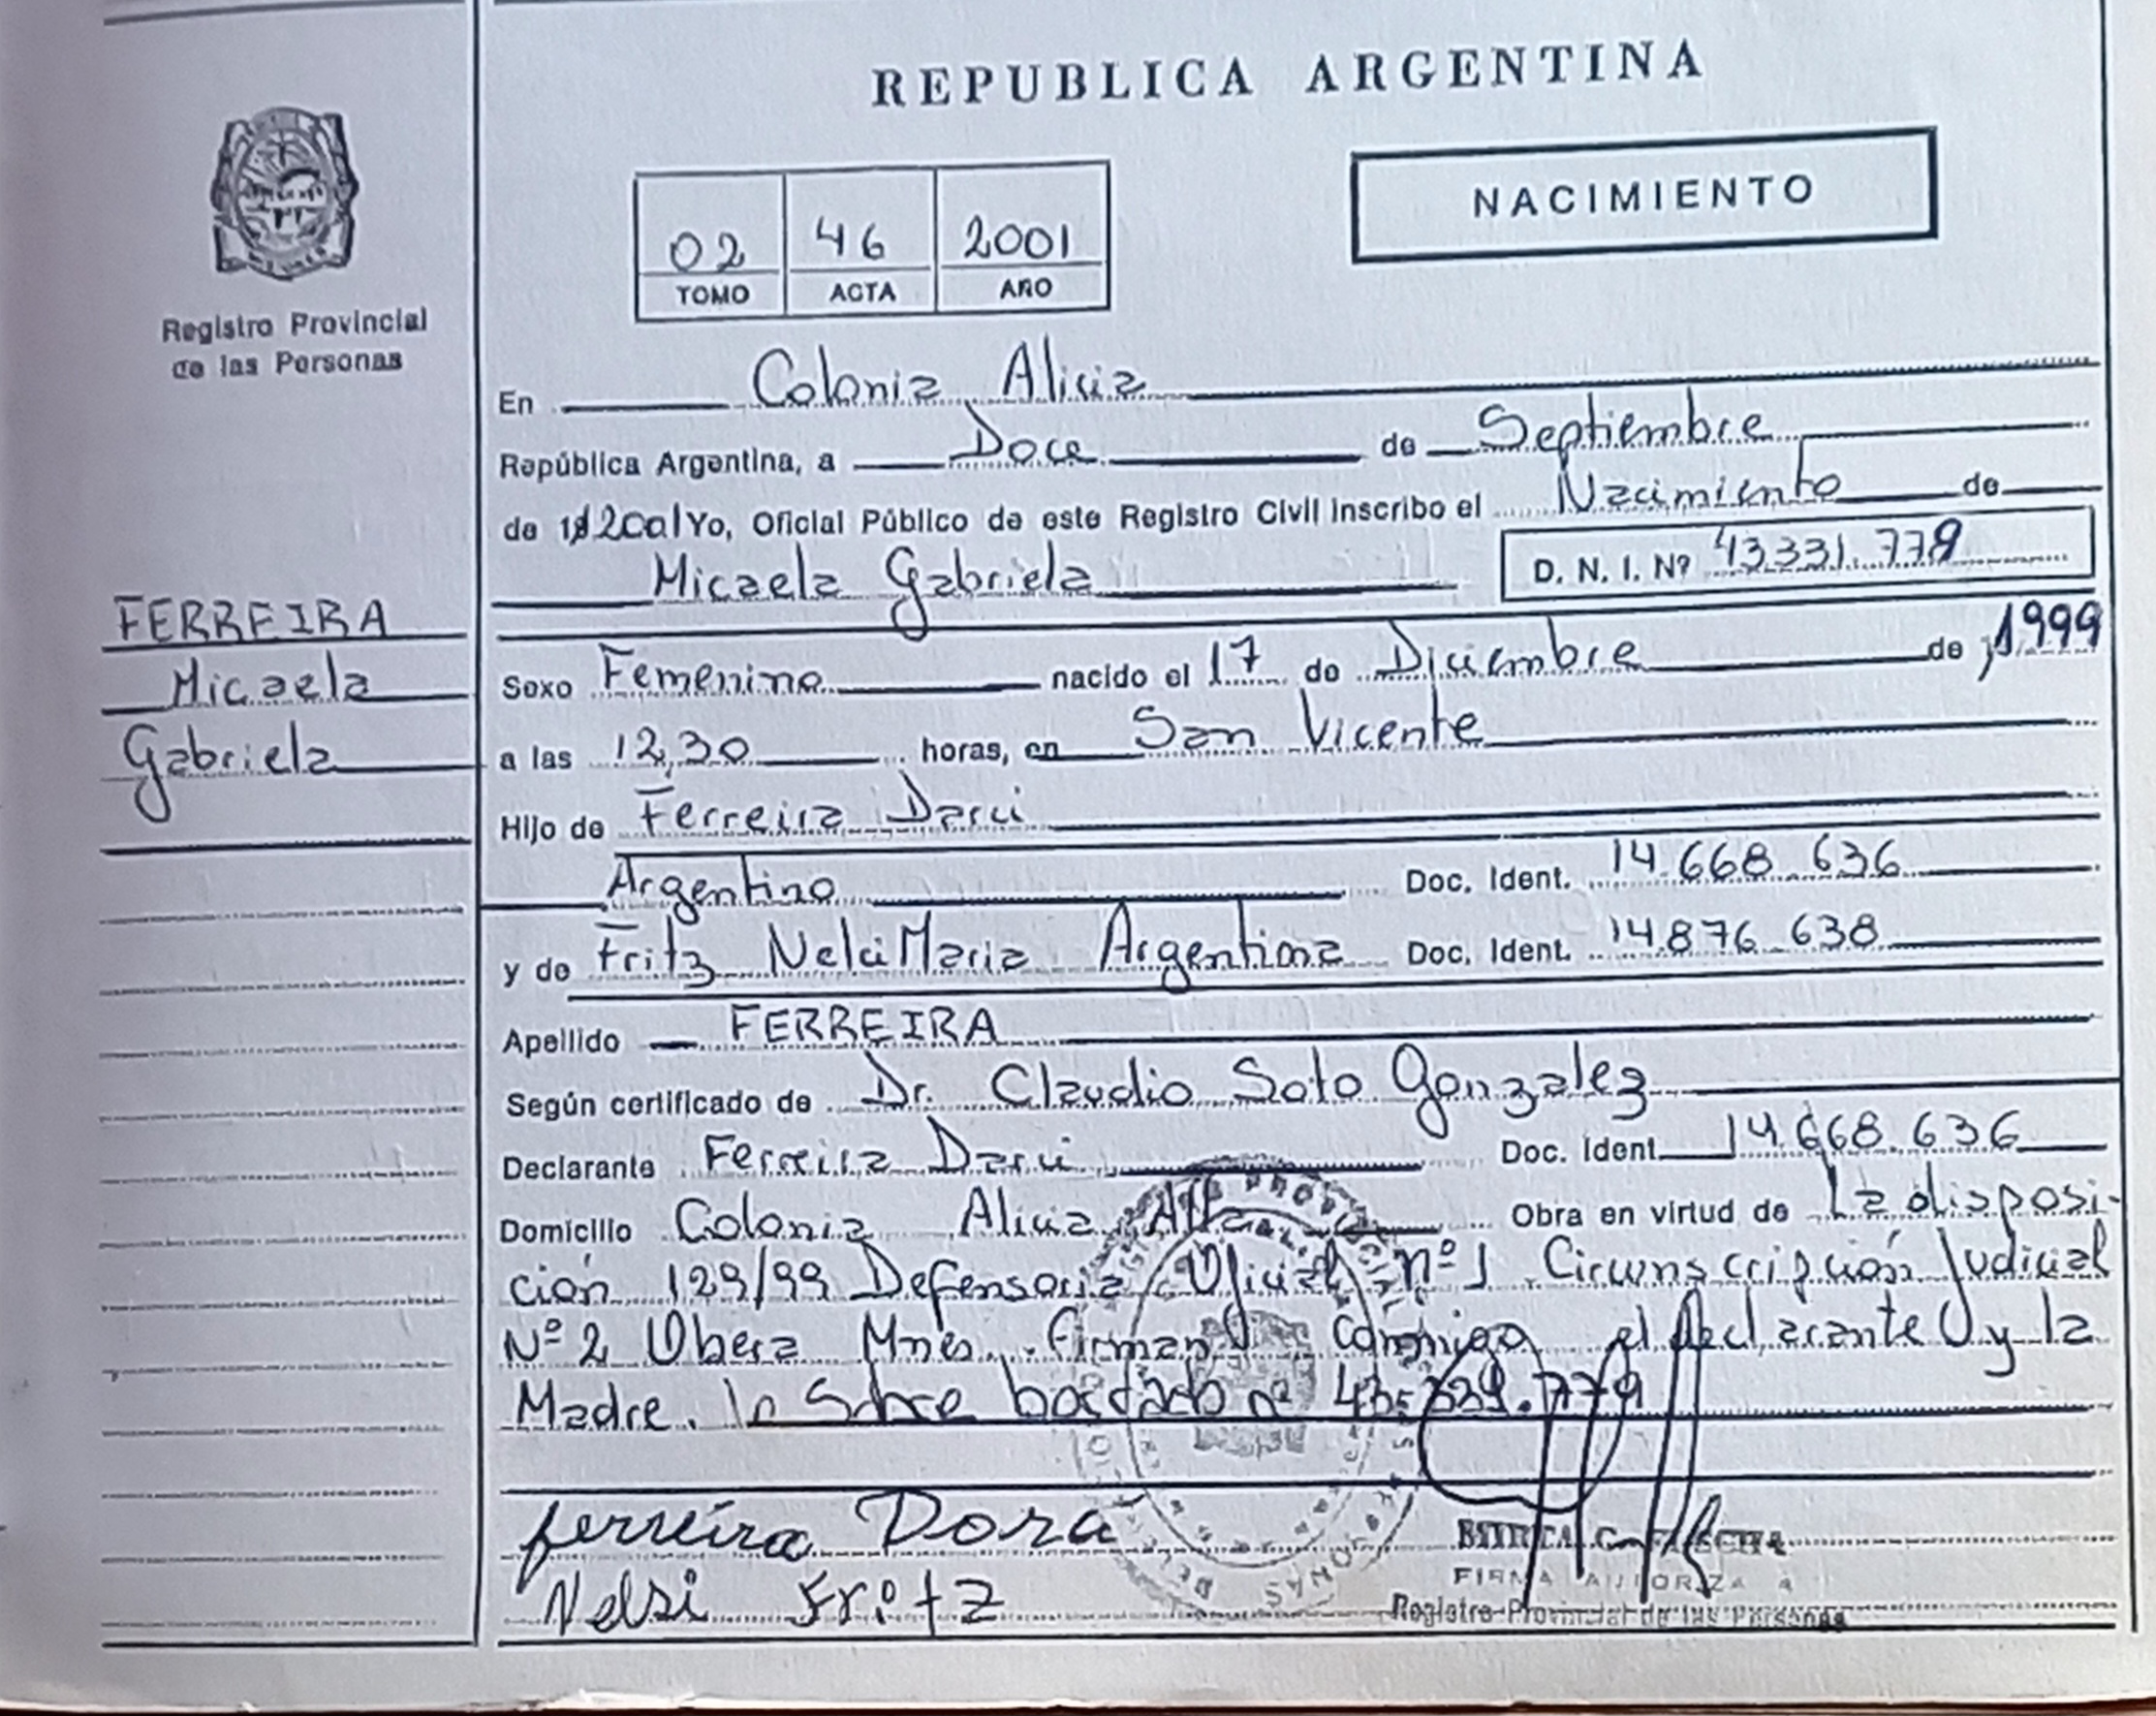 REPUBLICA ARGENTINA
NACIMIENTO
02 46 2001
TOMO ACTA AÑO
Registro Provincial
de las Personas
En Colonia Alicia
República Argentina, a Doce de Septiembre
de Yo, Oficial Público de este Registro Civil inscribo el Nacimiento de
Micaela Gabriela D. N. I. Nº 43.331.779
FERREIRA
Micaela
Gabriela
Sexo Femenino nacido el 17 de Diciembre de 1999
a las 12,30 horas, en San Vicente
Hijo de Ferreira Darci
Argentino Doc. Ident. 14.668.636
y de Fritz Nelci Maria Argentina Doc. Ident. 14.876.638
Apellido FERREIRA
Según certificado de Dr. Claudio Soto Gonzalez
Declarante Ferreira Darci Doc. Ident. 14.668.636
Domicilio Colonia Alicia Obra en virtud de La disposi-
ción 129/99 Defensoria Oficial nº 1 Circunscripción Judicial
Nº 2 Obera Mnes. Firman Conmigo el declarante y la
Madre. lo Sobre bordado nº
ferreira Dorca
Nelsi Fritz
FIRMA AUTORIZADA
Registro Provincial de las Personas